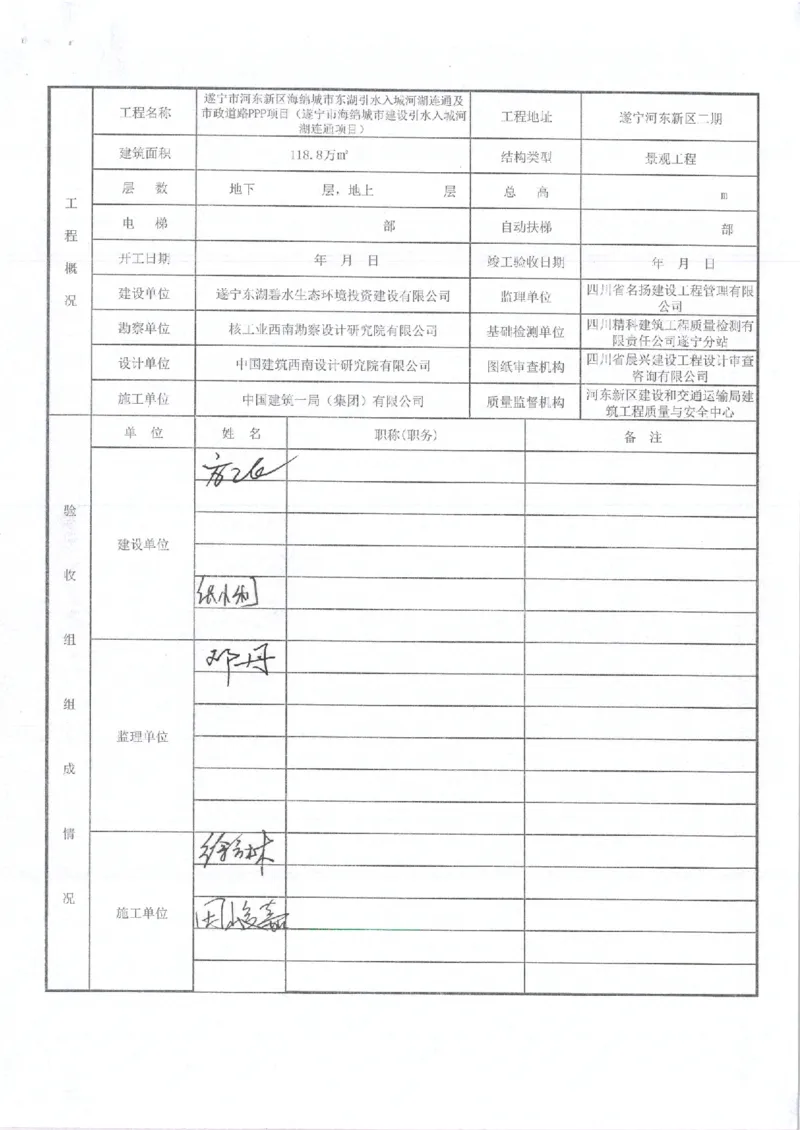 工程概况
工程名称
遂宁市河东新区海绵城市东湖引水入城河湖连通及
市政道路PPP项目（遂宁市海绵城市建设引水入城河
湖连通项目）
工程地址
遂宁河东新区二期
建筑面积
118.8万㎡
结构类型
景观工程
层 数
地下 层，地上 层
总 高
m
电 梯
部
自动扶梯
部
开工日期
年 月 日
竣工验收日期
年 月 日
建设单位
遂宁东湖碧水生态环境投资建设有限公司
监理单位
四川省名扬建设工程管理有限
公司
勘察单位
核工业西南勘察设计研究院有限公司
基础检测单位
四川精科建筑工程质量检测有
限责任公司遂宁分站
设计单位
中国建筑西南设计研究院有限公司
图纸审查机构
四川省晨兴建设工程设计审查
咨询有限公司
施工单位
中国建筑一局（集团）有限公司
质量监督机构
河东新区建设和交通运输局建
筑工程质量与安全中心
验收组组成情况
单 位
姓 名
职称(职务)
备 注
建设单位
监理单位
邓丹
施工单位